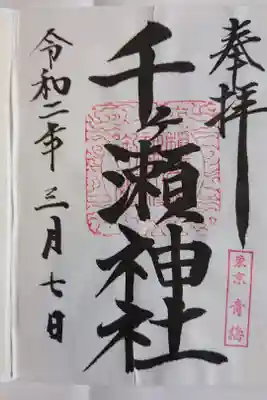 奉拝
東京 青梅
千ヶ瀬神社
令和二年三月七日